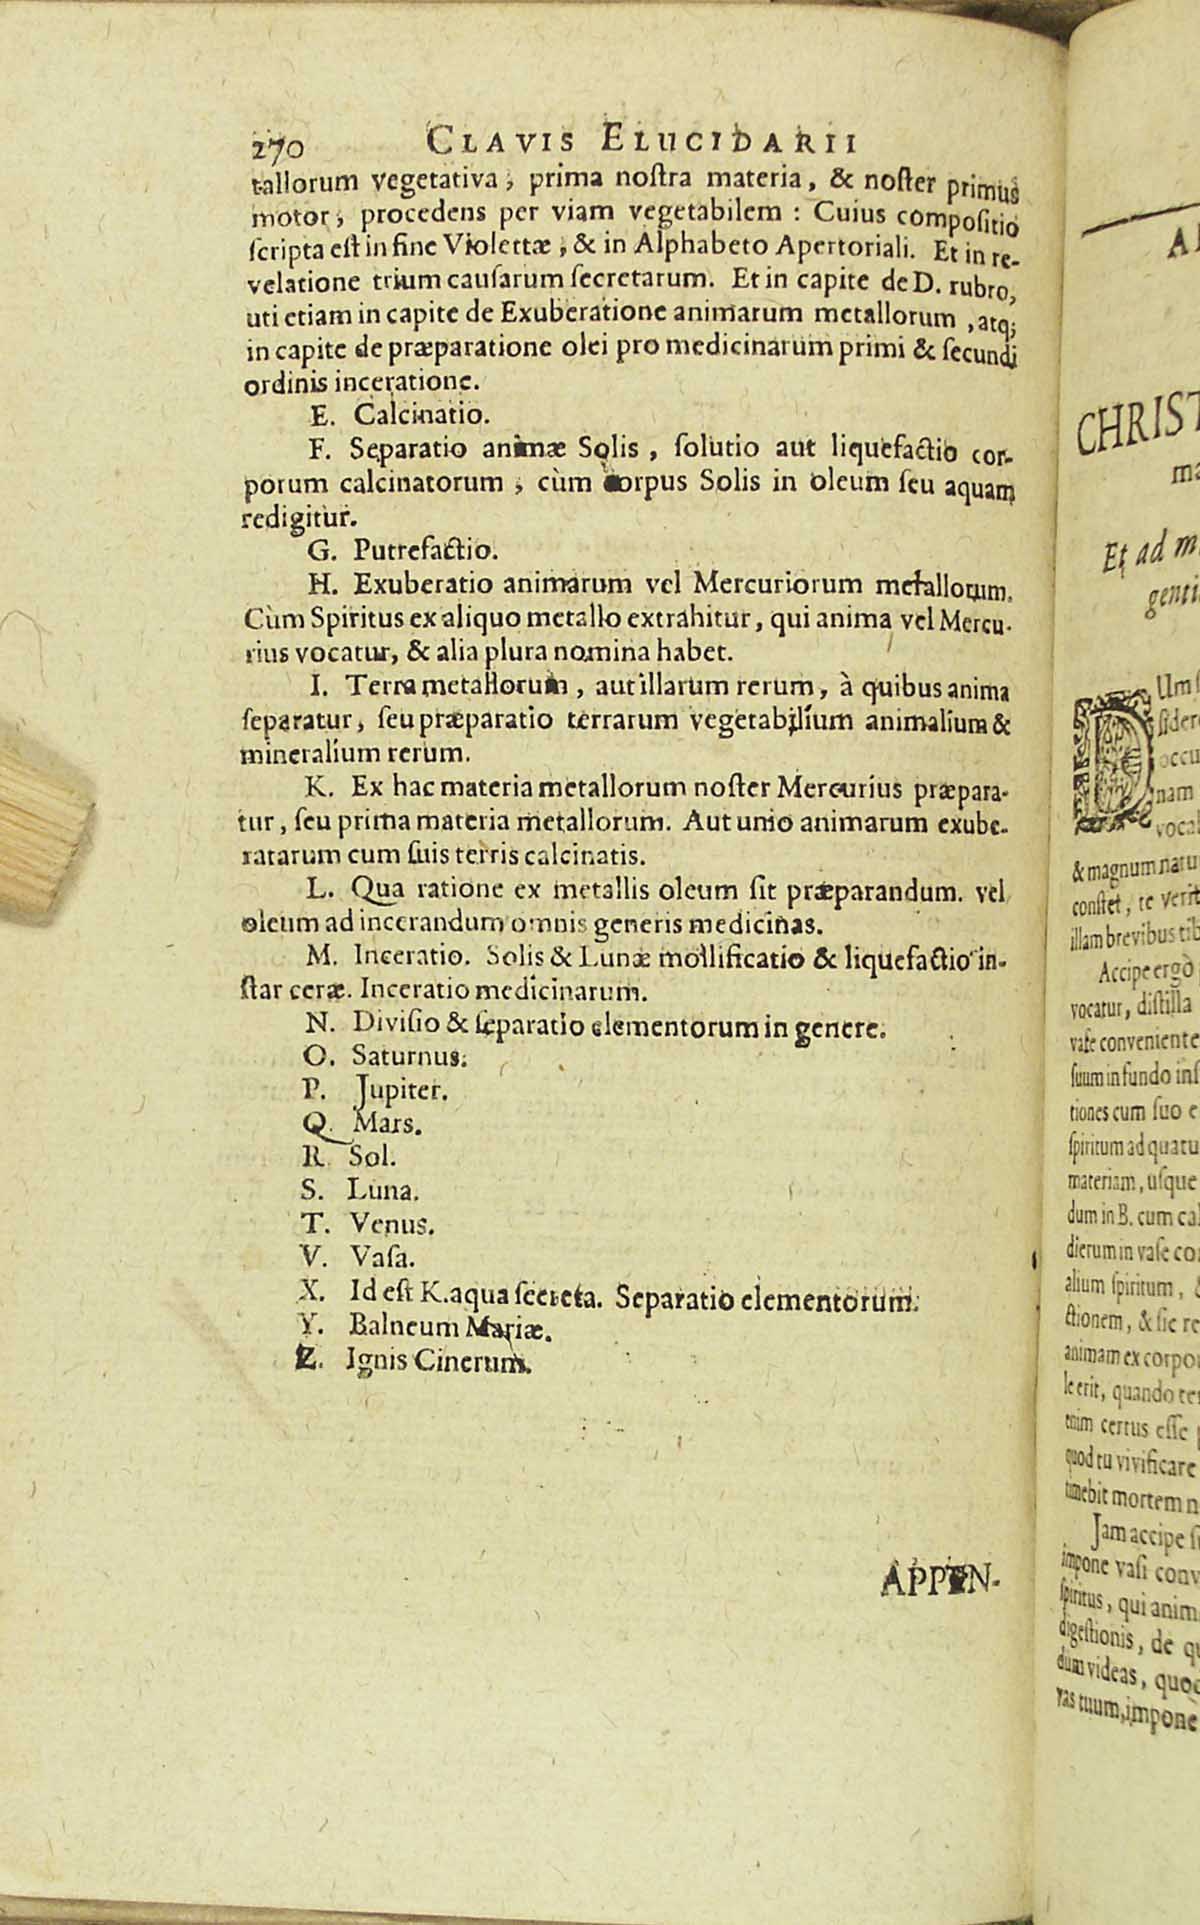 270 CLAVIS ELUCIDARII
tallorum vegetativa, prima noſtra materia, & noſter primus
motor, procedens per viam vegetabilem : Cuius compoſitio
ſcripta eſt in fine Violettæ, & in Alphabeto Apertoriali. Et in re-
velatione trium cauſarum ſecretarum. Et in capite de D. rubro,
uti etiam in capite de Exuberatione animarum metallorum, atq;
in capite de præparatione olei pro medicinarum primi & ſecundi
ordinis inceratione.
E. Calcinatio.
F. Separatio animæ Solis, ſolutio aut liquefactio cor-
porum calcinatorum, cùm corpus Solis in oleum ſeu aquam
redigitur.
G. Putrefactio.
H. Exuberatio animarum vel Mercuriorum metallorum.
Cùm Spiritus ex aliquo metallo extrahitur, qui anima vel Mercu-
rius vocatur, & alia plura nomina habet.
I. Terra metallorum, aut illarum rerum, à quibus anima
ſeparatur, ſeu præparatio terrarum vegetabilium animalium &
mineralium rerum.
K. Ex hac materia metallorum noſter Mercurius præpara-
tur, ſeu prima materia metallorum. Aut unio animarum exube-
ratarum cum ſuis terris calcinatis.
L. Qua ratione ex metallis oleum ſit præparandum. vel
oleum ad incerandum omnis generis medicinas.
M. Inceratio. Solis & Lunæ mollificatio & liquefactio in-
ſtar ceræ. Inceratio medicinarum.
N. Diviſio & ſeparatio elementorum in genere.
O. Saturnus.
P. Jupiter.
Q. Mars.
R. Sol.
S. Luna.
T. Venus.
V. Vaſa.
X. Id eſt K. aqua ſecreta. Separatio elementorum.
Y. Balneum Mariæ.
Z. Ignis Cinerum.
APPEN-
CHRIST
Et ad
occu
nam
& magnum
conſtet, te
illam brevibus
Accipe ergò
vocatur, diſtilla
vaſe conveniente
ſuum in fundo
tiones cum ſuo
ſpiritum ad
materiam, uſque
dum in B. cum
dierum in vaſe
alium ſpiritum,
ctionem, & ſic
animam ex
le erit, quando
enim certus eſſe
quod tu vivificare
timebit mortem
Jam accipe
impone vaſi
ſpiritus, qui
digeſtionis, de
dum videas,
vas tuum, impone